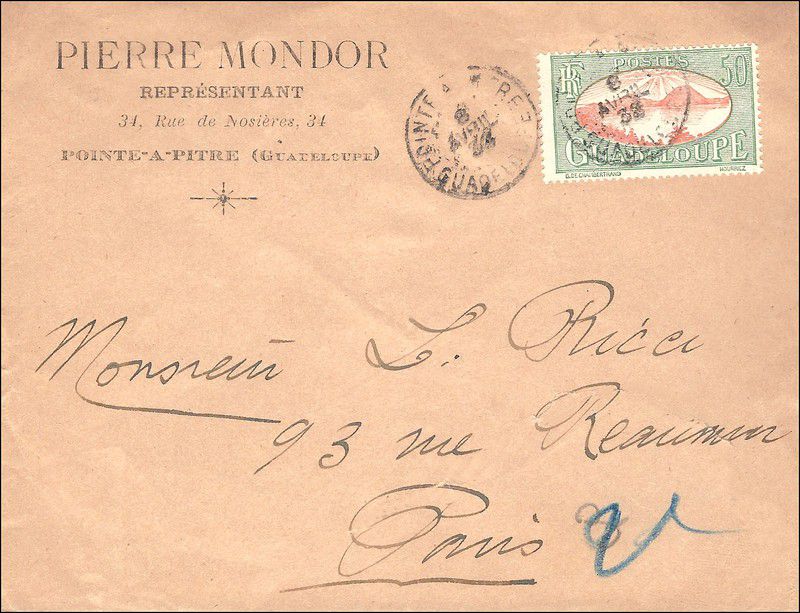 PIERRE MONDOR
REPRÉSENTANT
34, Rue de Nosières, 34
POINTE-A-PITRE (GUADELOUPE)
POINTE A PITRE
8
AVRIL
GUADELOUPE
RF
POSTES
50
8
AVRIL
GUADELOUPE
G. DE CHAMBERTRAND
HOURRIEZ
Monsieur L. Ricci
93 rue Reaumur
Paris